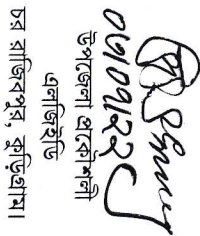 উপজেলা প্রকৌশলী
এলজিইডি
চর রাজিবপুর, কুড়িগ্রাম।